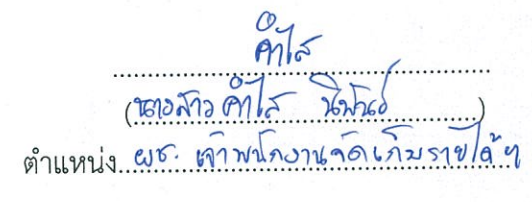 คำไส
(นางสาว คำไส นิพันธ์)
ตำแหน่ง ผช. เจ้าพนักงานจัดเก็บรายได้ฯ